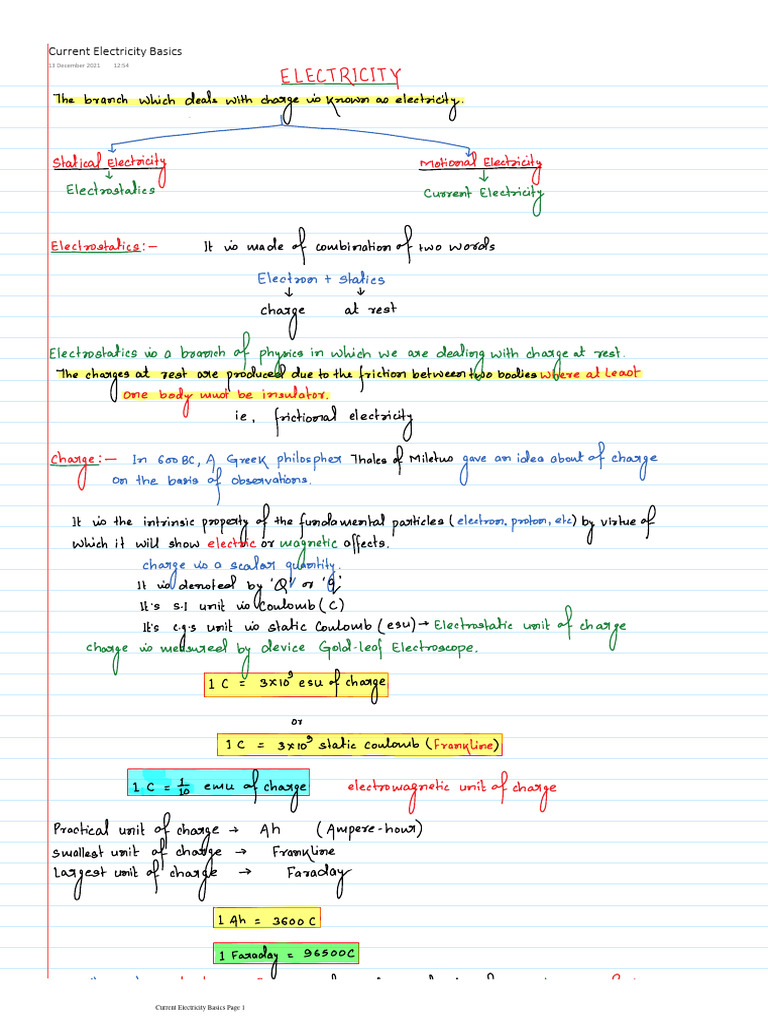 Current Electricity Basics
13 December 2021 12:54
ELECTRICITY
The branch which deals with charge is known as electricity.
Statical Electricity Motional Electricity
Electrostatics Current Electricity
Electrostatics:- It is made of combination of two words
Electron + statics
↓ ↓
charge at rest
Electrostatics is a branch of physics in which we are dealing with charge at rest.
The charges at rest are produced due to the friction between two bodies where at least
one body must be insulator.
ie, frictional electricity
Charge:- In 600BC, A Greek philospher Thales of Miletus gave an idea about of charge
on the basis of observations.
It is the intrinsic property of the fundamental particles (electron, proton, etc) by virtue of
which it will show electric or magnetic affects.
charge is a scalar quantity.
It is denoted by 'Q' or 'q'
It's s.I unit is Coulomb (C)
It's c.g.s unit is static Coulomb (esu) → Electrostatic unit of charge
charge is measured by device Gold-leaf Electroscope.
1 C = 3×10⁹ esu of charge
or
1 C = 3×10⁹ static coulomb (Frankline)
1 C = 1/10 emu of charge electromagnetic unit of charge
Practical unit of charge → Ah (Ampere-hour)
smallest unit of charge → Frankline
Largest unit of charge → Faraday
1 Ah = 3600 C
1 Faraday = 96500C
Current Electricity Basics Page 1